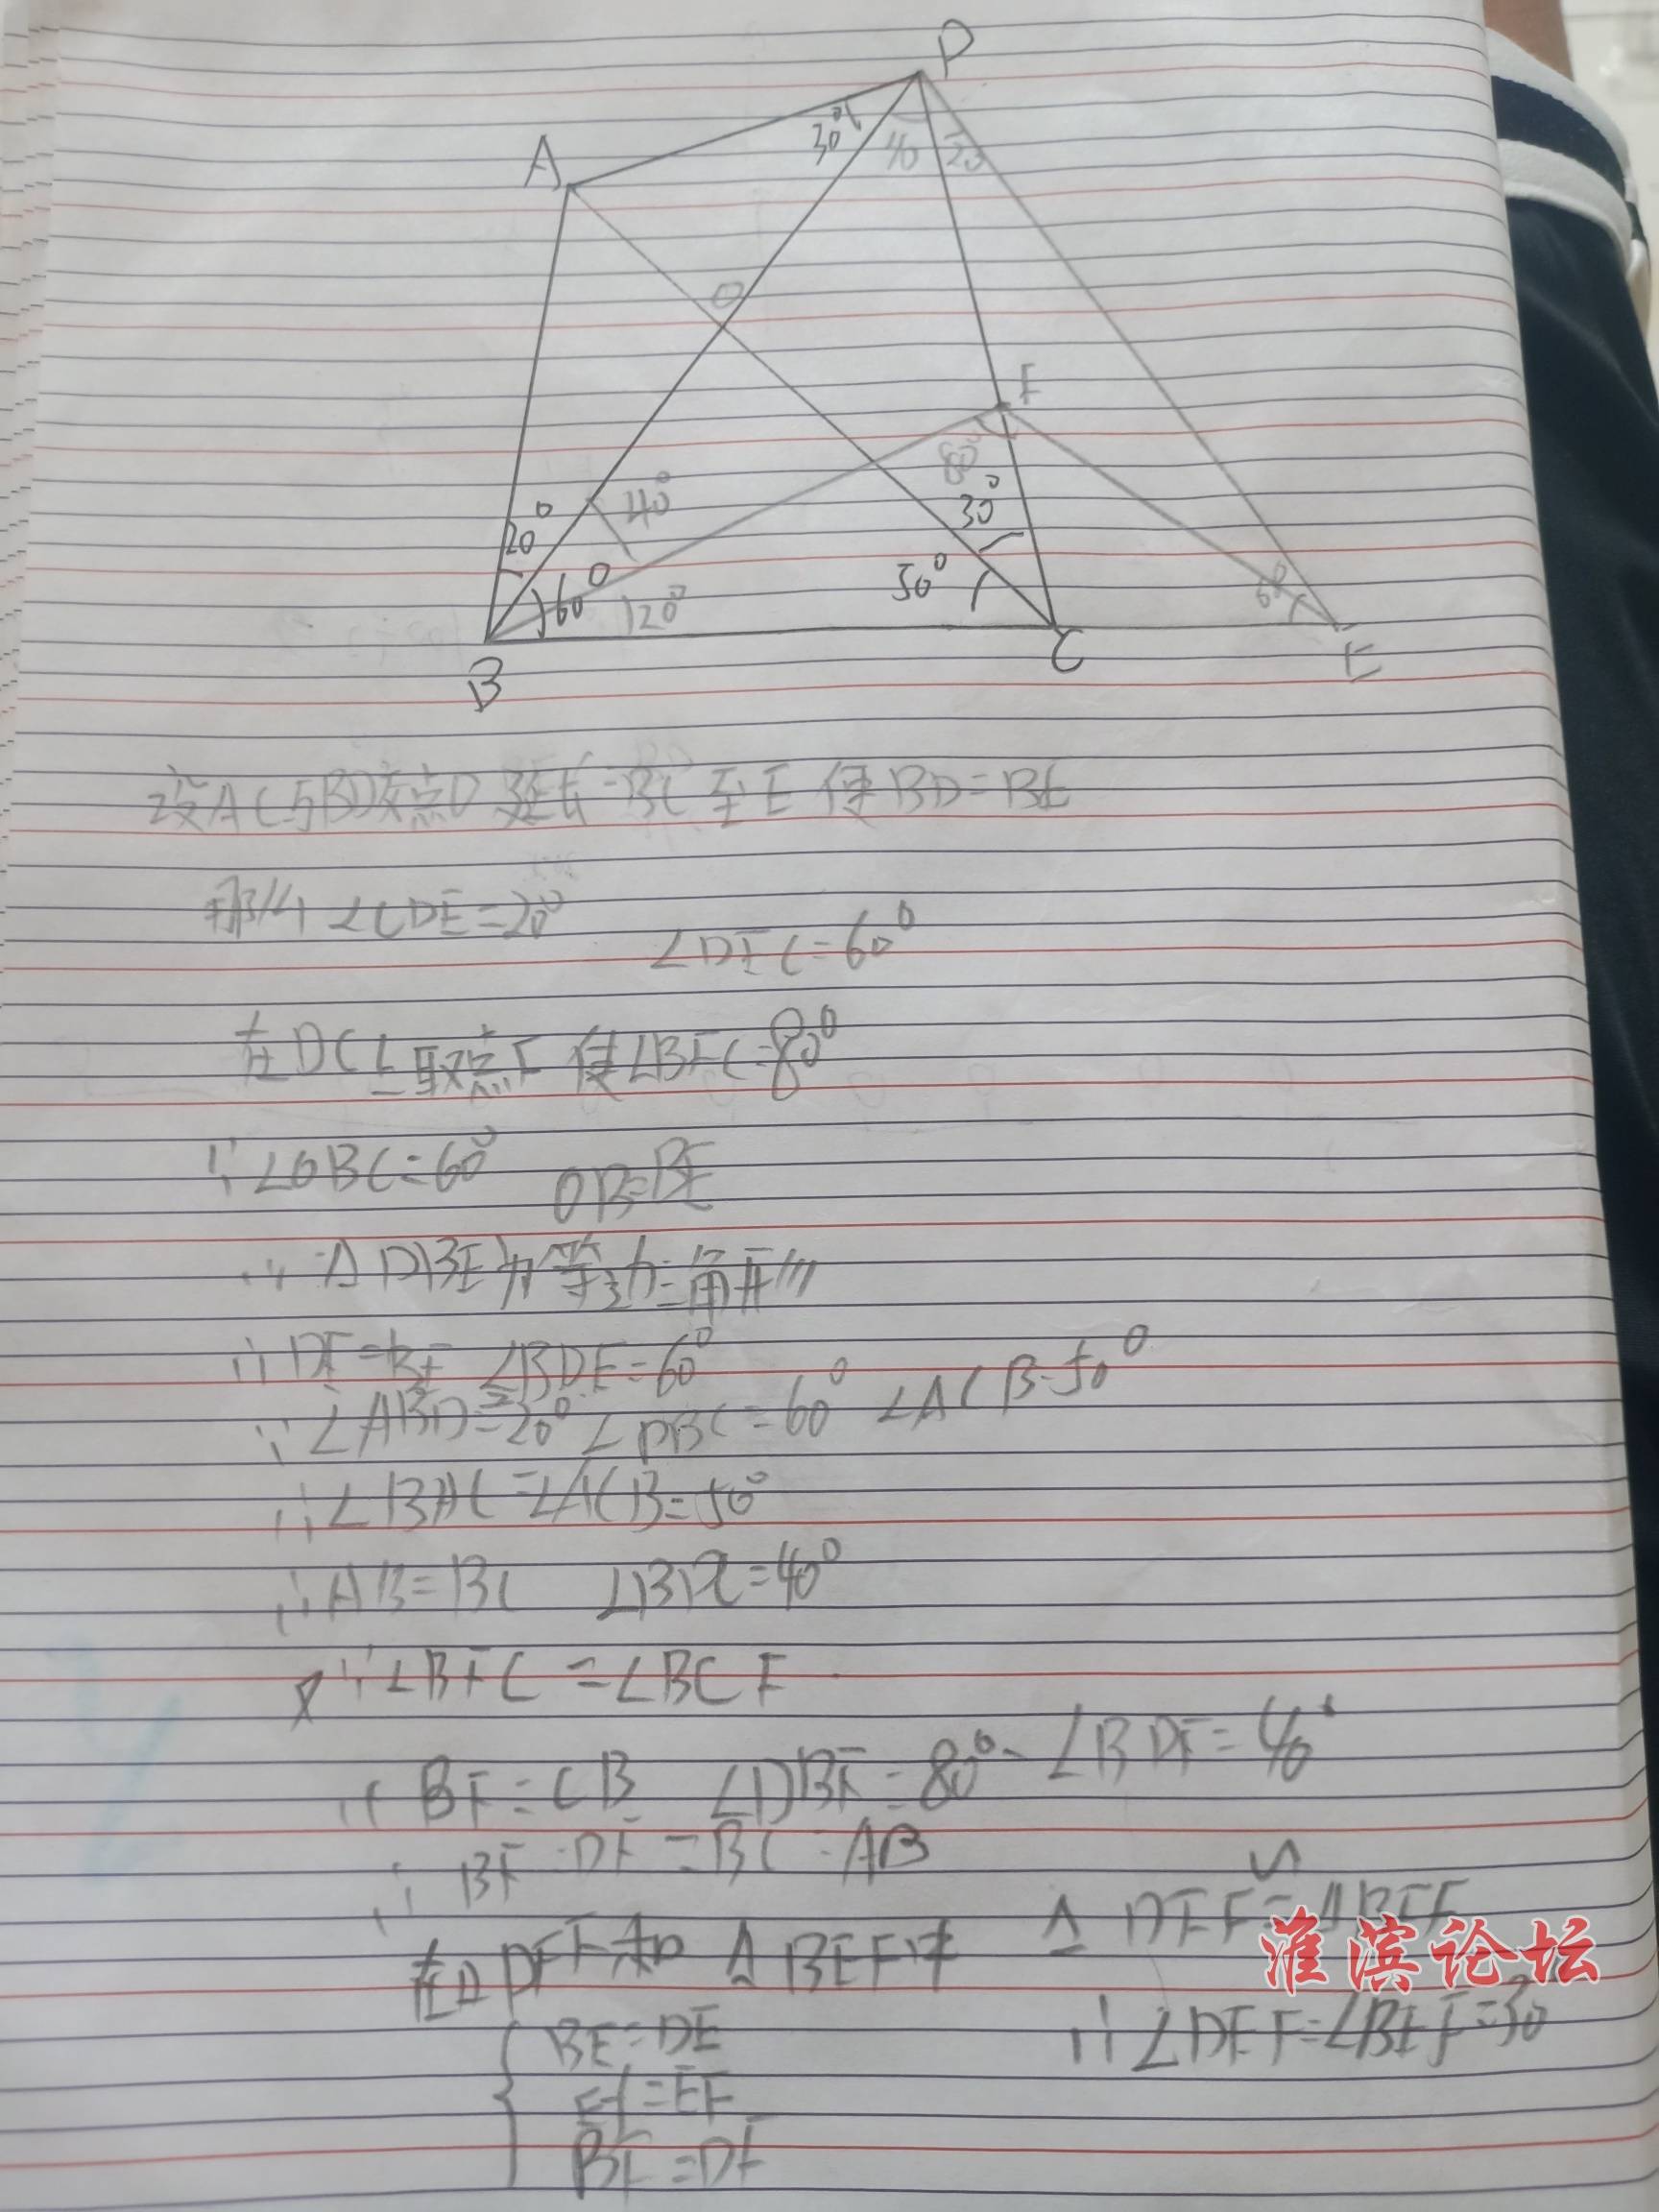 D
A
30°
40
20
O
F
80°
30°
40°
20°
60°
50°
120°
60
B
C
E
设AC与BD交点O 延长BC至E 使BD=BE
那么∠CDE=20°
∠DEC=60°
在DC上取点F 使∠BFC=80°
∵∠OBC=60°
∴△DBE为等边三角形
∴DE=BE ∠BDE=60°
∵∠ABD=20° ∠DBC=60° ∠ACB=50°
∴∠BAC=∠ACB=50°
∴AB=BC ∠BDC=40°
又∵∠BFC=∠BCF
∴BF=CB ∠BDF=40°
∴BF=DF=BC=AB
在△DEF和△BEF中
△DEF≌△BEF
BE=DE
EF=EF
BF=DF
∴∠DEF=∠BEF=30°
淮滨论坛